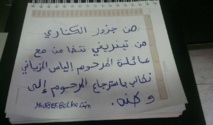 من جزور الكناري
من تينريفي نتضامن مع
عائلة المرحوم إلياس المزياني
نطالب باسترجاع المرحوم إلى
وطنه.